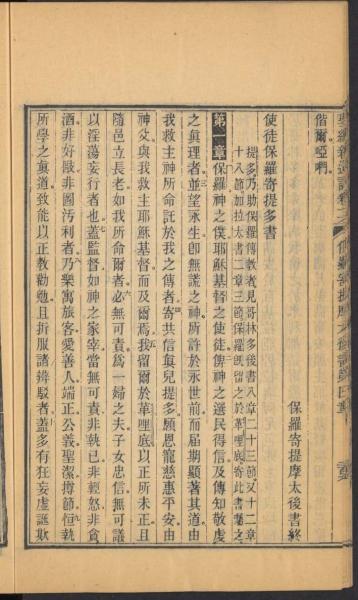 偕爾啞𠵽
保羅寄提摩太後書終
使徒保羅寄提多書
提多乃助保羅傳教者見哥林多後書八章二十三節又十二章
十八節加拉太書二章三節保羅旣留之於革哩底寄此書囑之
第一章保羅神之僕耶穌基督之使徒俾神之選民得信及傳知敬虔
之眞理者並望永生卽無謊之神所許於永世前而屆期顯著其道由
我救主神所命託於我之傳者寄共信眞兒提多願恩寵慈惠平安由
神父與我救主耶穌基督而及爾焉我留爾於革哩底以正所未正且
隨邑立長老如我所命爾者必無可責爲一婦之夫子女忠信無可議
以淫蕩妄行者也蓋監督如神之家宰當無可責非執已非輕怒非貪
酒非好毆非圖污利者乃樂寓旅客愛善人端正公義聖潔撙節恒執
所學之眞道致能以正教勸勉且折服諸辨駁者蓋多有狂妄虛誑欺